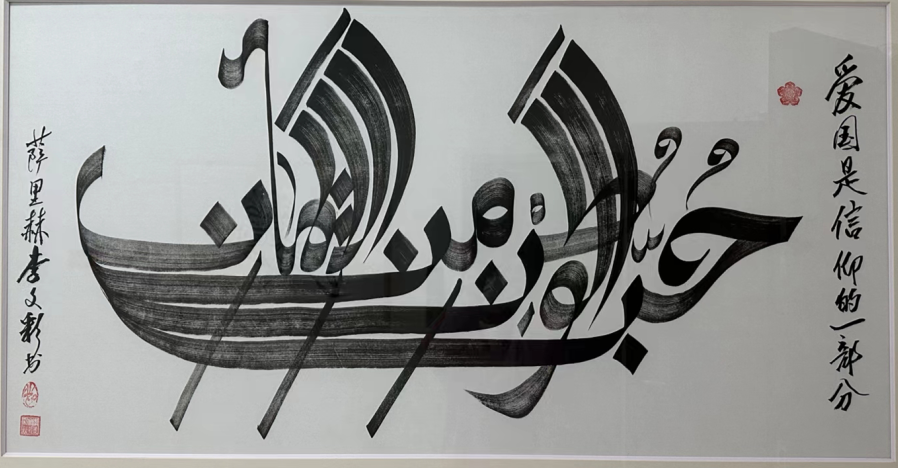 爱国是信仰的一部分
حُبُّ الوطن من الإيمان
萨里赫李文彩书